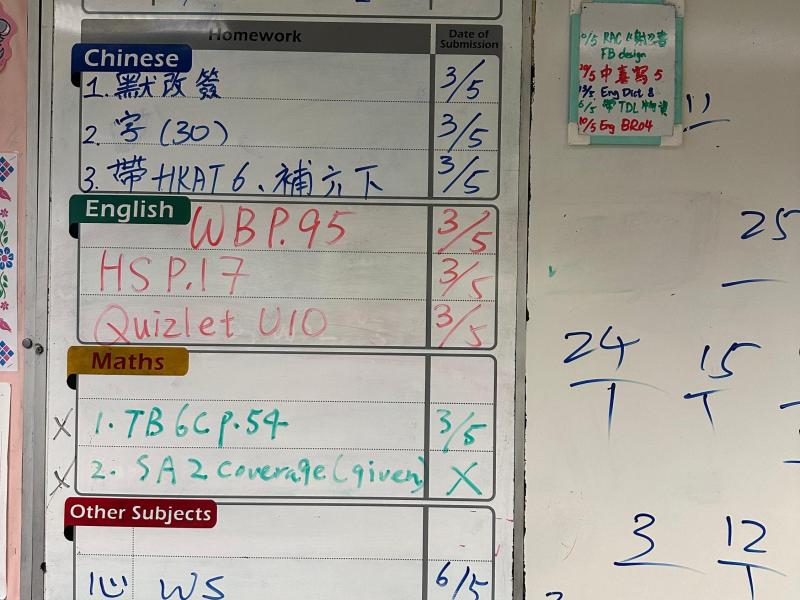 Homework Date of Submission
Chinese
1. 默改簽 3/5
2. 字(30) 3/5
3. 帶 HKAT 6、補六下 3/5
English
WB P.95 3/5
HS P.17 3/5
Quizlet U10 3/5
Maths
X 1. TB 6C p.54 3/5
X 2. SA 2 coverage (given) X
Other Subjects
心 WS 6/5
/5 RAC
FB design
/5 中 寫 5
/5 Eng Dict 8
6/5 帶 TDL 物資
10/5 Eng BR04
11
25
24 15
3 12